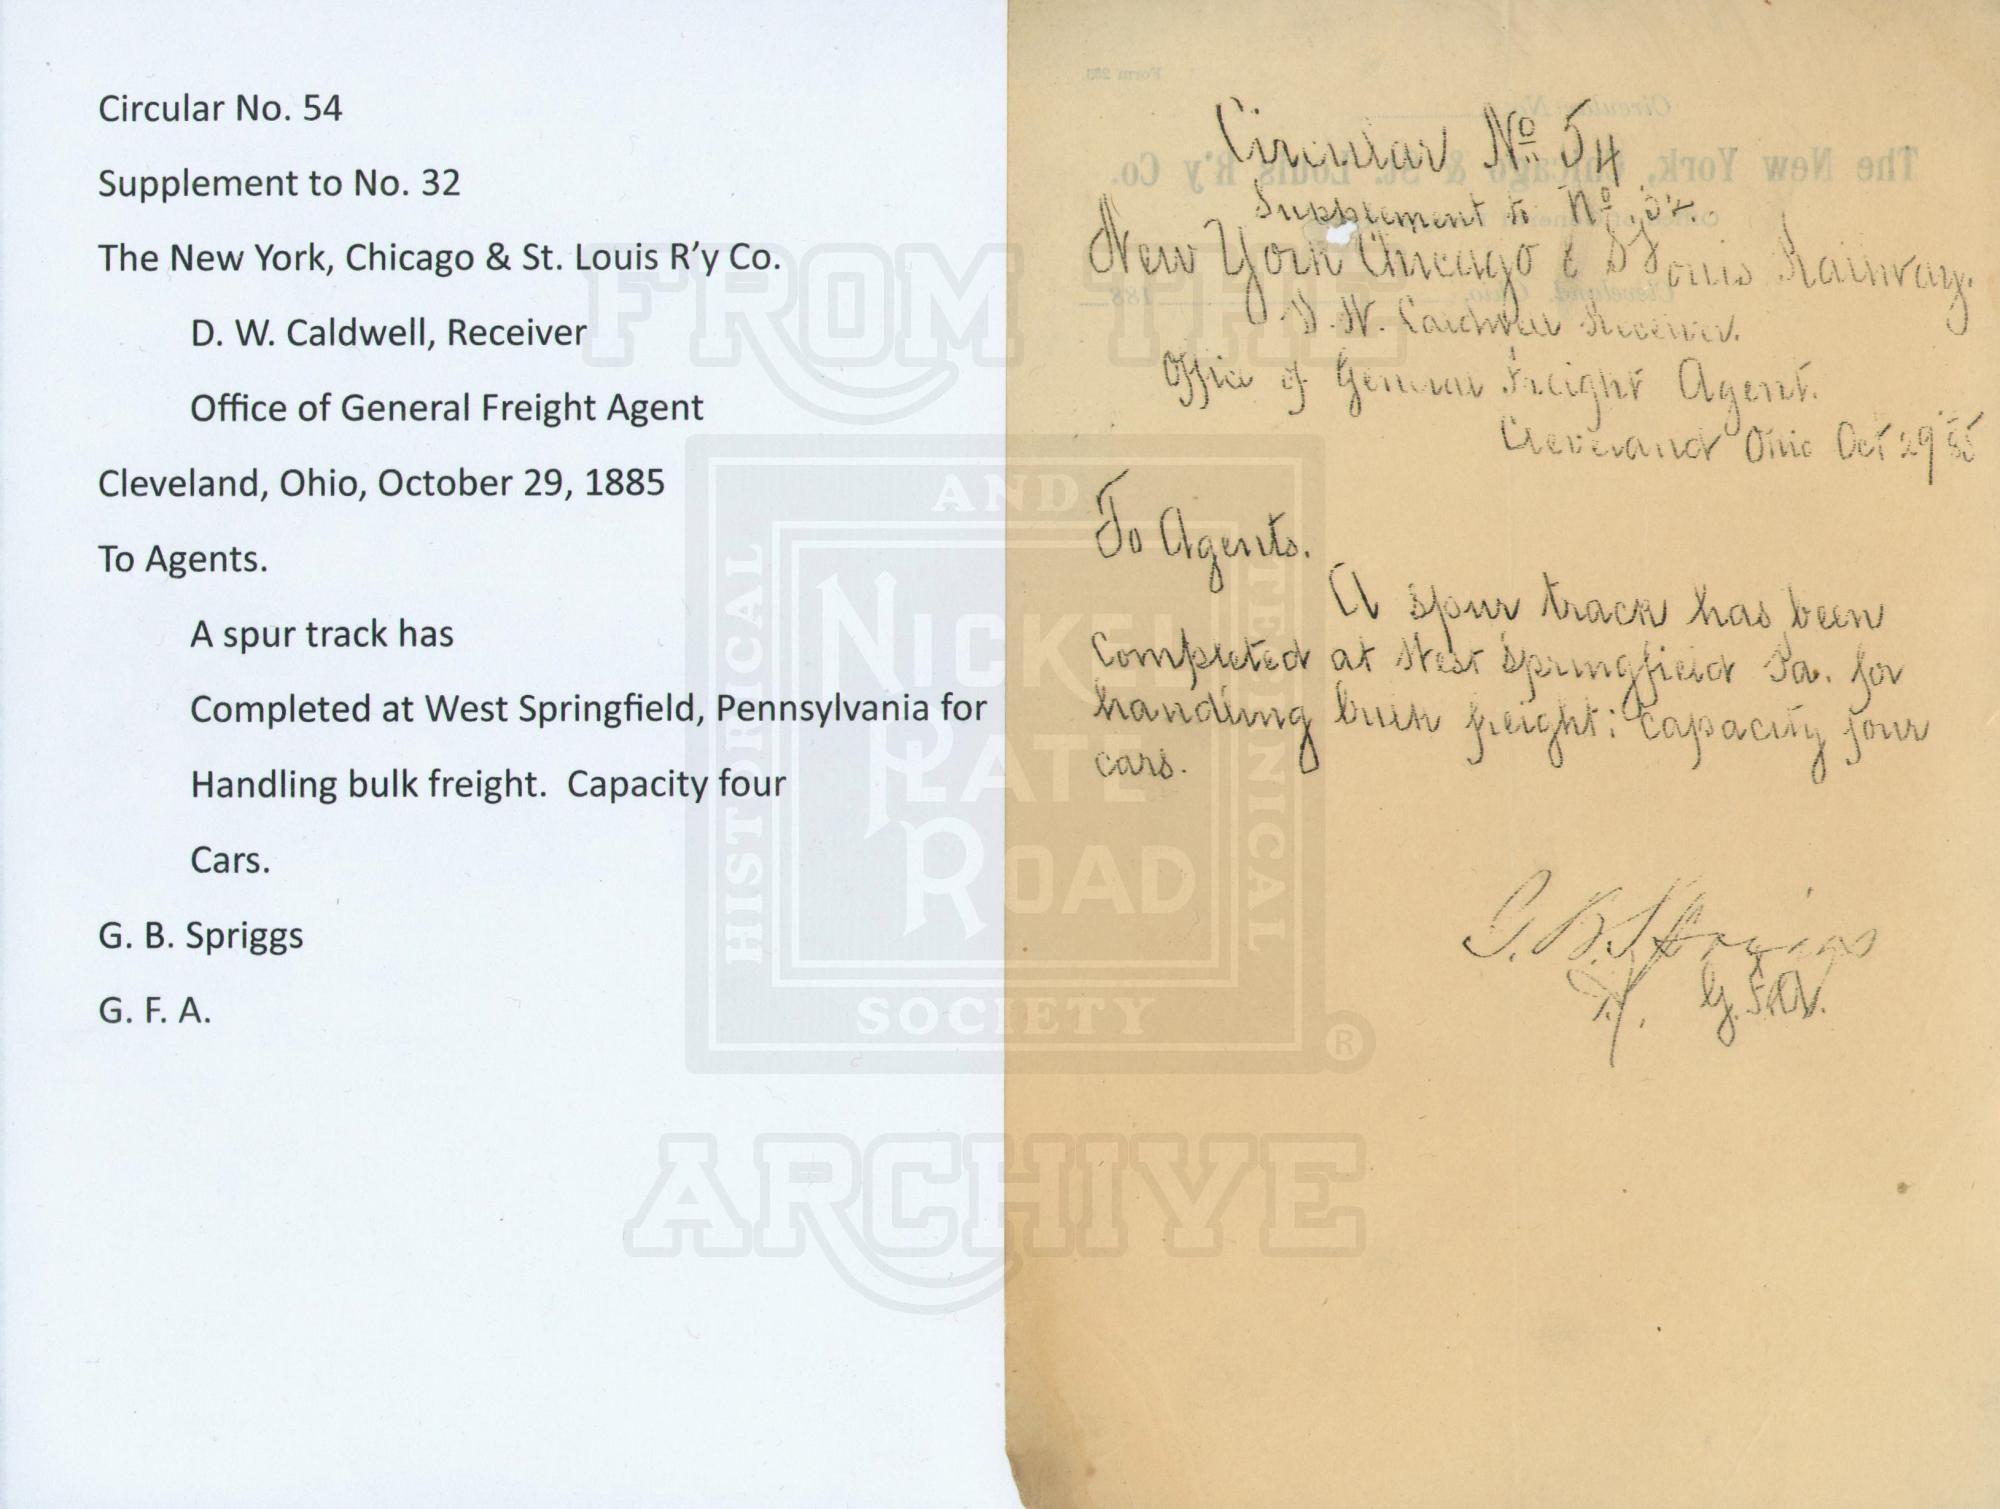 Circular No. 54
Supplement to No. 32
The New York, Chicago & St. Louis R'y Co.
D. W. Caldwell, Receiver
Office of General Freight Agent
Cleveland, Ohio, October 29, 1885
To Agents.
A spur track has
Completed at West Springfield, Pennsylvania for
Handling bulk freight.  Capacity four
Cars.
G. B. Spriggs
G. F. A.
Form
Circular No.
The New York, Chicago & St. Louis R'y Co.
Cleveland, Ohio, 188
Circular No 54
Supplement to No. 32.
New York Chicago & St Louis Railway.
D. W. Caldwell Receiver.
Office of General Freight Agent.
Cleveland Ohio Oct 29 85
To Agents.
A spur track has been
completed at West Springfield Pa. for
handling bulk freight: capacity four
cars.
G. B. Spriggs
G. F. A.
FROM THE
HISTORICAL AND TECHNICAL SOCIETY
NICKEL
PLATE
ROAD
®
ARCHIVE